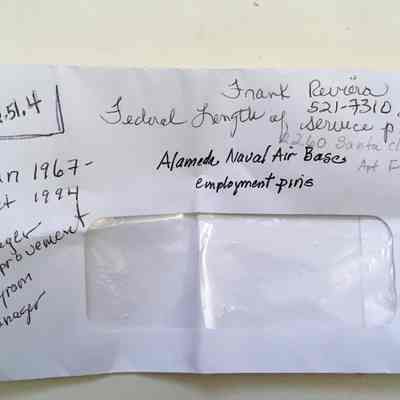 Frank Reviera
521-7310
Federal Length of service p
2260 Santa Cl
Apt F
Alameda Naval Air Base
employment pins
.51.4
an 1967-
ct 1994
ager
provement
gram
anager